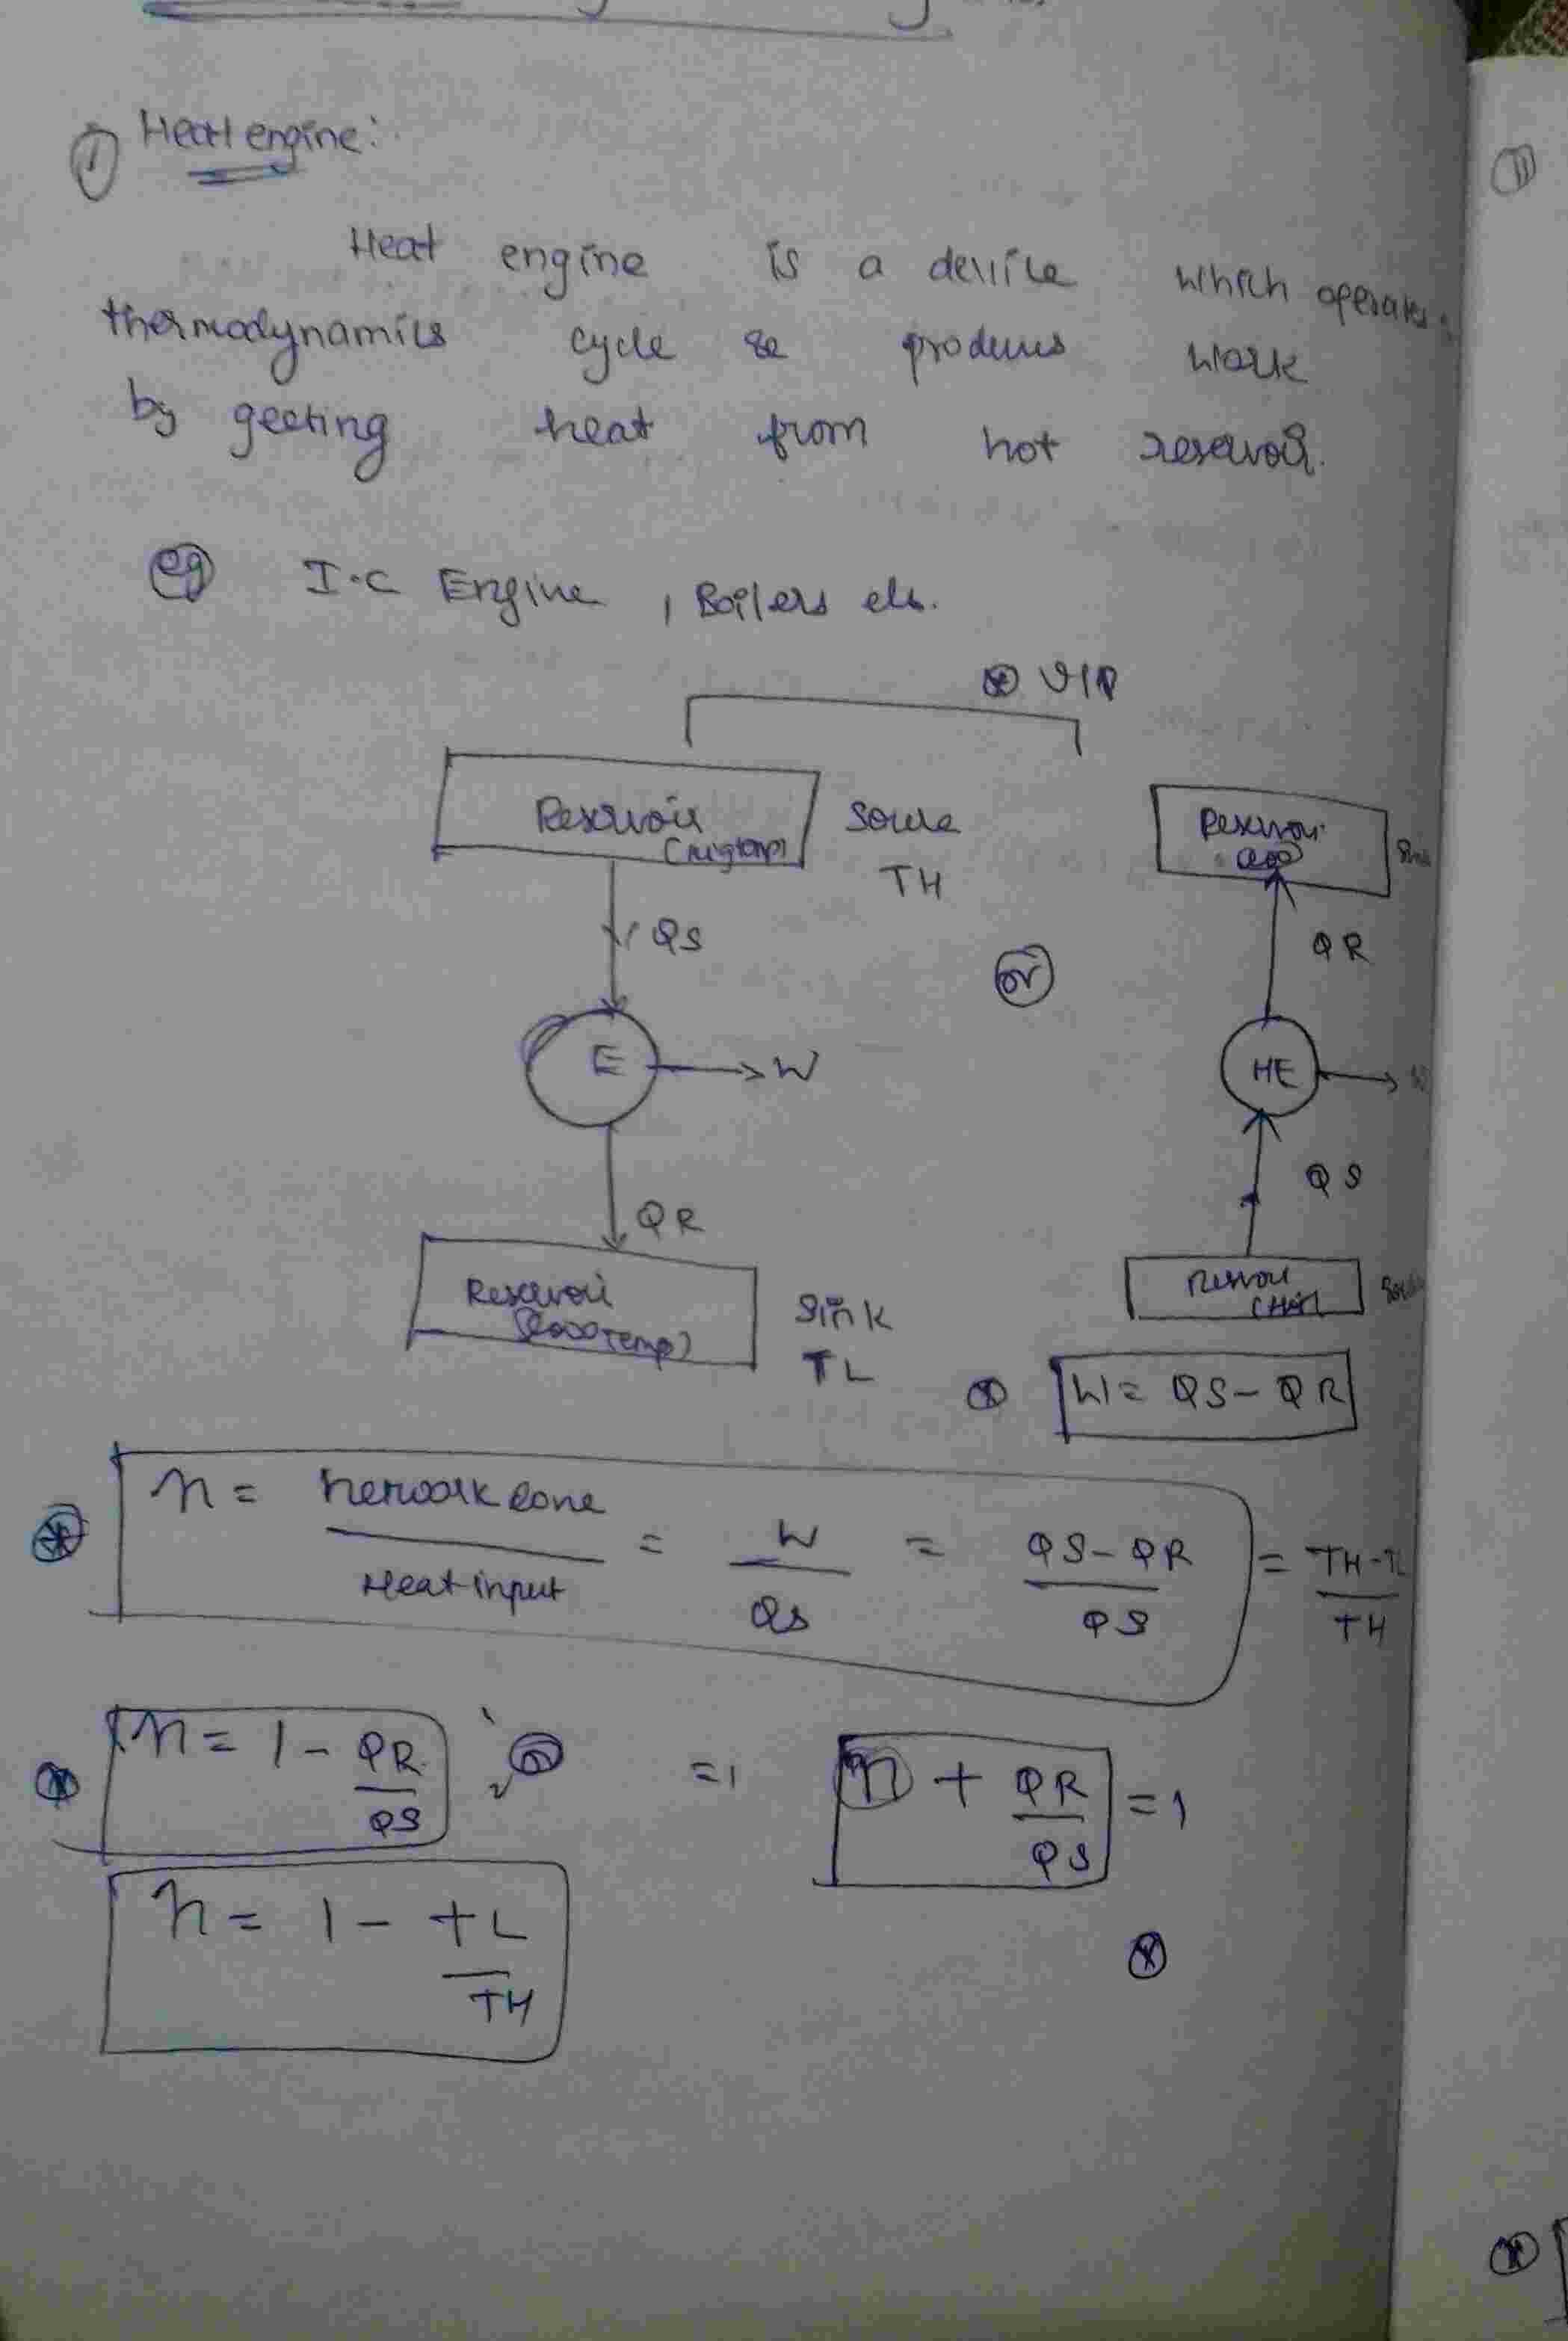 1 Heat engine:
Heat engine is a device which operates
thermodynamics cycle & produces work
by geeting heat from hot reservoir.
eg I.C Engine, Boilers etc.
VIP
Reservoir Source
TH
Reservoir
QS
QR
or
E → W
HE
QR
QS
Reservoir
(low Temp)
Sink
TL
W = QS - QR
n = network done / Heat input = W / Qs = QS - QR / QS = TH - TL / TH
n = 1 - QR / QS
= 1
n + QR / QS = 1
n = 1 - TL / TH